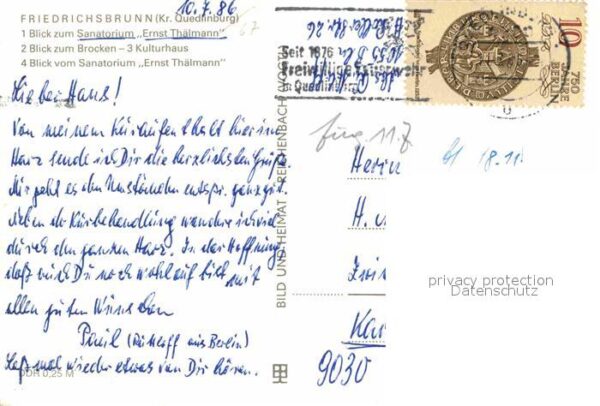 10.7.86
67
FRIEDRICHSBRUNN (Kr. Quedlinburg)
1 Blick zum Sanatorium „Ernst Thälmann"
2 Blick zum Brocken – 3 Kulturhaus
4 Blick vom Sanatorium „Ernst Thälmann"
Lieber Hans!
Von meinem Kuraufenthalt hier im
Harz sende ich Dir die herzlichsten Grüße.
Mir geht es den Umständen entspr. ganz gut.
Neben der Kurbehandlung wandere ich viel
durch den ganzen Harz. In der Hoffnung,
daß auch Du noch wohlauf bist, mit
allen guten Wünschen
Paul ( aus Berlin)
Laß mal wieder etwas von Dir hören.
DDR 0,25 M
BILD UND HEIMAT REICHENBACH (VOGTL)
Seit 1876
Freiwillige Feuerwehr
Quedlinburg
10
750
JAHRE
BERLIN
11.7
18.11
Herrn
H.
9030
privacy protection
Datenschutz